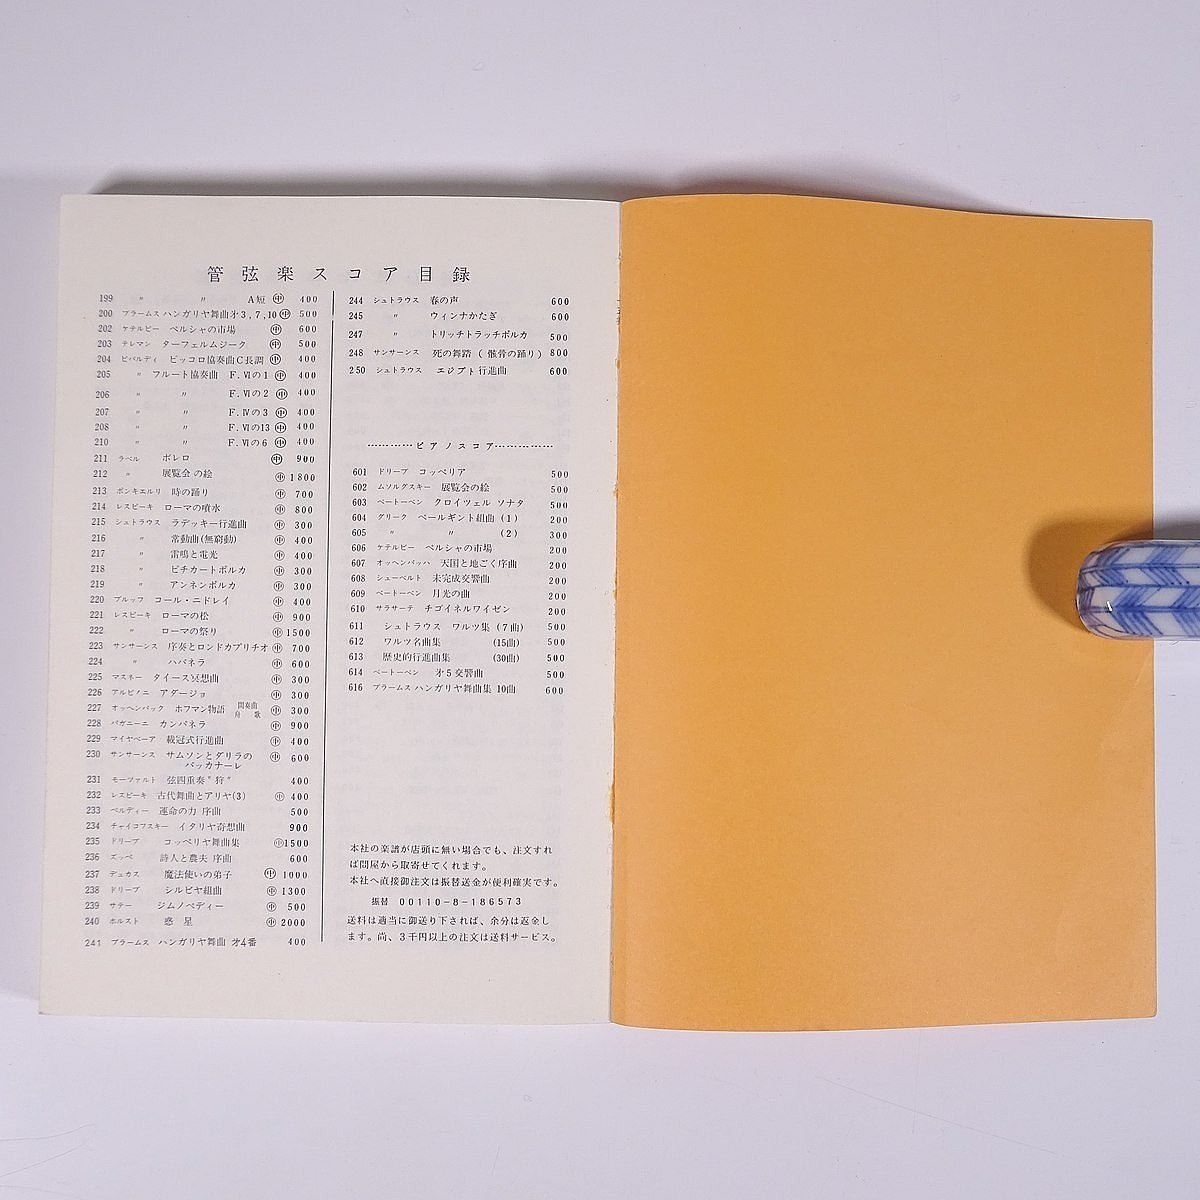 管弦楽スコア目録
199 〃 〃 A短 ㊥ 400
200 ブラームス ハンガリヤ舞曲オ3,7,10 ㊥ 500
202 ケテルビー ペルシャの市場 ㊥ 600
203 テレマン ターフェルムジーク ㊥ 500
204 ビバルディ ピッコロ協奏曲C長調 ㊥ 400
205 〃 フルート協奏曲 F.Ⅵの1 ㊥ 400
206 〃 〃 F.Ⅵの2 ㊥ 400
207 〃 〃 F.Ⅳの3 ㊥ 400
208 〃 〃 F.Ⅵの13 ㊥ 400
210 〃 〃 F.Ⅵの6 ㊥ 400
211 ラベル ボレロ ㊥ 900
212 〃 展覧会の絵 ㊥ 1800
213 ポンキエルリ 時の踊り ㊥ 700
214 レスピーキ ローマの噴水 ㊥ 800
215 シュトラウス ラデッキー行進曲 ㊥ 300
216 〃 常動曲(無窮動) ㊥ 400
217 〃 雷鳴と電光 ㊥ 400
218 〃 ピチカートポルカ ㊥ 300
219 〃 アンネンポルカ ㊥ 300
220 ブルッフ コール・ニドレイ ㊥ 400
221 レスピーキ ローマの松 ㊥ 900
222 〃 ローマの祭り ㊥ 1500
223 サンサーンス 序奏とロンドカプリチオ ㊥ 700
224 〃 ハバネラ ㊥ 600
225 マスネー タイース冥想曲 ㊥ 300
226 アルビノニ アダージョ ㊥ 300
227 オッヘンバック ホフマン物語 間奏曲 舟歌 ㊥ 300
228 パガニーニ カンパネラ ㊥ 900
229 マイヤベーア 載冠式行進曲 ㊥ 400
230 サンサーンス サムソンとダリラの ㊥ 600
バッカナーレ
231 モーツァルト 弦四重奏〝狩〟 400
232 レスピーキ 古代舞曲とアリヤ(3) ㊥ 400
233 ベルディー 運命の力 序曲 500
234 チャイコフスキー イタリヤ奇想曲 900
235 ドリーブ コッペリヤ舞曲集 ㊥1500
236 ズッペ 詩人と農夫 序曲 600
237 デュカス 魔法使いの弟子 ㊥ 1000
238 ドリーブ シルビヤ組曲 ㊥ 1300
239 サテー ジムノペディー ㊥ 500
240 ホルスト 惑星 ㊥ 2000
241 ブラームス ハンガリヤ舞曲 オ4番 400
244 シュトラウス 春の声 600
245 〃 ウィンナかたぎ 600
247 〃 トリッチトラッチポルカ 500
248 サンサーンス 死の舞踏 (骸骨の踊り) 800
250 シュトラウス エジプト行進曲 600
…………ピアノスコア……………
601 ドリーブ コッペリア 500
602 ムソルグスキー 展覧会の絵 500
603 ベートーベン クロイツェル ソナタ 500
604 グリーク ペールギント組曲 (1) 200
605 〃 〃 (2) 300
606 ケテルビー ペルシャの市場 200
607 オッヘンバッハ 天国と地ごく序曲 200
608 シューベルト 未完成交響曲 200
609 ベートーベン 月光の曲 200
610 サラサーテ チゴイネルワイゼン 200
611 シュトラウス ワルツ集 (7曲) 500
612 ワルツ名曲集 (15曲) 500
613 歴史的行進曲集 (30曲) 500
614 ベートーベン オ5交響曲 500
616 ブラームス ハンガリヤ舞曲集 10曲 600
本社の楽譜が店頭に無い場合でも、注文すれ
ば問屋から取寄せてくれます。
本社へ直接御注文は振替送金が便利確実です。
振替 00110-8-186573
送料は適当に御送り下されば、余分は返金し
ます。尚、3千円以上の注文は送料サービス。